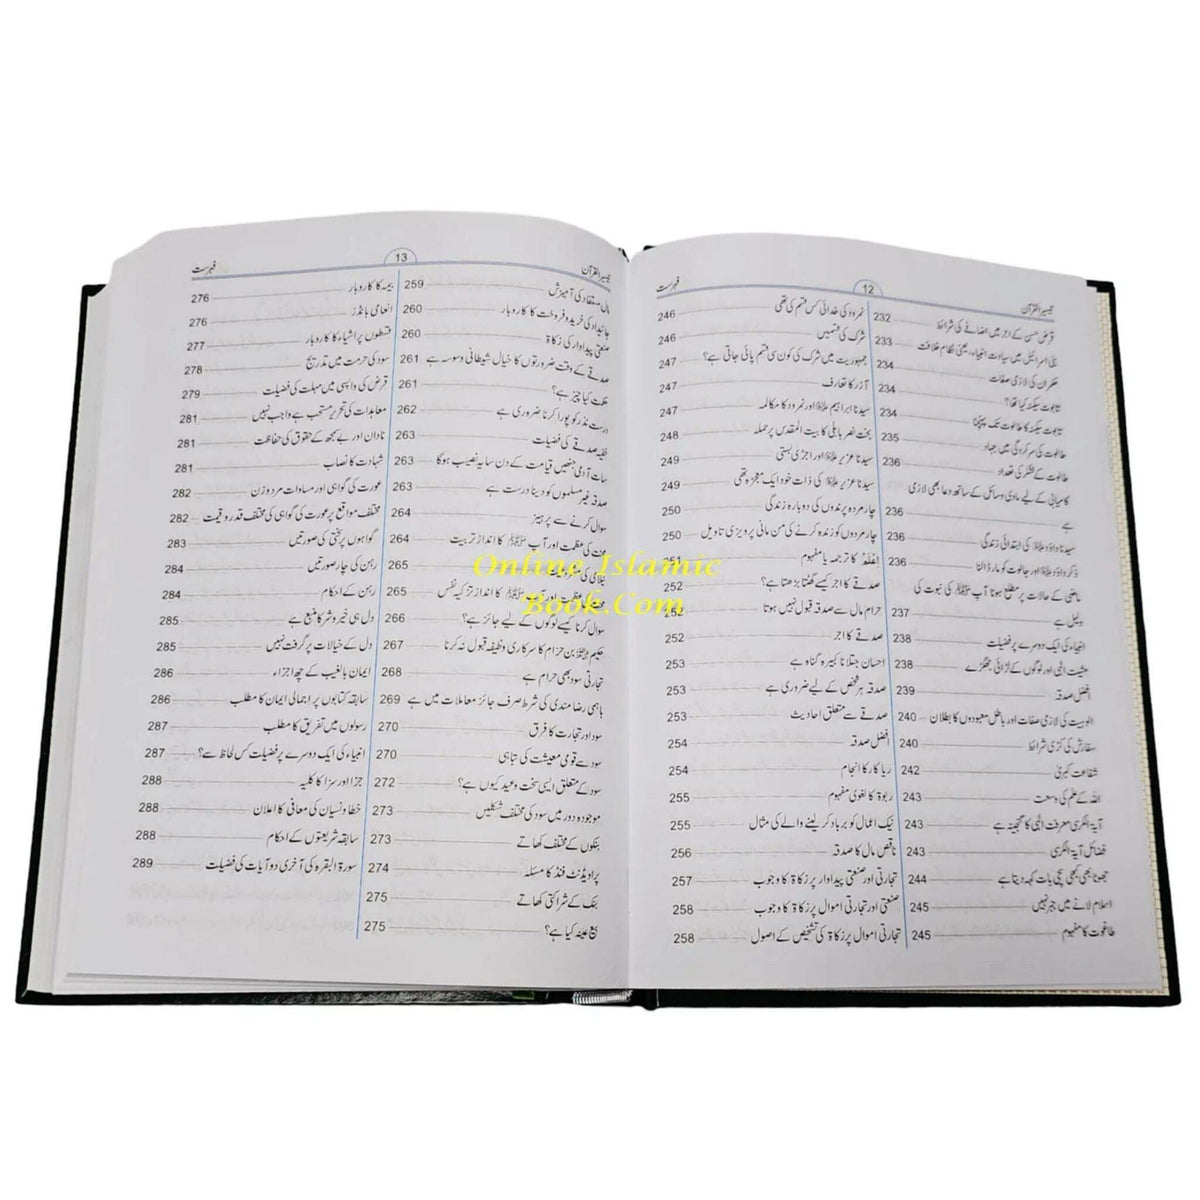 تیسیر القرآن 12 فہرست
قرض حسن کے اجر میں اضافے کی شرائط 232
بنی اسرائیل میں سیادت انبیاء، یعنی نظام خلافت 233
حکمران کی لازمی صفات 234
تابوت سکینہ کیا تھا؟ 234
تابوت سکینہ کا طالوت تک پہنچنا 234
طالوت کی سرکردگی میں جہاد 235
طالوت کے لشکر کی تعداد 236
کامیابی کے لیے مادی وسائل کے ساتھ دعا بھی لازمی
ہے 236
سیدنا داؤد علیہ السلام کی ابتدائی زندگی 236
ذکر داؤد علیہ السلام اور جالوت کو مار ڈالنا 236
ماضی کے حالات پر مطلع ہونا آپ ﷺ کی نبوت کی
دلیل ہے 237
انبیاء کی ایک دوسرے پر فضیلت 238
مشیت الٰہی اور لوگوں کے لڑائی جھگڑے 238
افضل صدقہ 239
الوہیت کی لازمی صفات اور باطل معبودوں کا بطلان 240
سفارش کی کڑی شرائط 240
شفاعت کبریٰ 242
اللہ کے علم کی وسعت 243
آیۃ الکرسی معرفت الٰہی کا گنجینہ ہے 243
فضائل آیۃ الکرسی 243
جھوٹا بھی کبھی سچی بات کہہ دیتا ہے 244
اسلام لانے میں جبر نہیں 245
طاغوت کا مفہوم 245
نمرود کی خدائی کس قسم کی تھی 246
شرک کی قسمیں 246
جمہوریت میں شرک کی کون سی قسم پائی جاتی ہے؟ 247
آزر کا تعارف 247
سیدنا ابراہیم علیہ السلام اور نمرود کا مکالمہ 247
بخت نصر بابلی کا بیت المقدس پر حملہ 248
سیدنا عزیر علیہ السلام اور اجڑی بستی 249
سیدنا عزیر علیہ السلام کی ذات خود ایک معجزہ تھی 249
چار مردہ پرندوں کی دوبارہ زندگی 250
چار مردوں کو زندہ کرنے کی من مانی پرویزی تاویل 250
کا ترجمہ یا مفہوم 251
صدقے کا اجر کیسے گھٹتا بڑھتا ہے؟ 252
حرام مال سے صدقہ قبول نہیں ہوتا 252
صدقے کا اجر 252
احسان جتلانا کبیرہ گناہ ہے 253
صدقہ ہر شخص کے لیے ضروری ہے 253
صدقے سے متعلق احادیث 253
افضل صدقہ 254
ریاکار کا انجام 254
ربوۃ کا لغوی مفہوم 255
نیک اعمال کو برباد کر لینے والے کی مثال 255
ناقص مال کا صدقہ 256
تجارتی اور صنعتی پیداوار پر زکاۃ کا وجوب 257
صنعتی اور تجارتی اموال پر زکاۃ کا وجوب 258
تجارتی اموال پر زکاۃ کی تشخیص کے اصول 258
تیسیر القرآن 13 فہرست
مال مستفاد کی آمیزش 259
جائیداد کی خرید و فروخت کا کاروبار 260
صنعتی پیداوار کی زکاۃ 260
صدقے کے وقت ضرورتوں کا خیال شیطانی وسوسہ ہے 261
حکمت کیا چیز ہے؟ 261
درست نذر کو پورا کرنا ضروری ہے 262
خفیہ صدقے کی فضیلت 263
سات آدمی جنھیں قیامت کے دن سایہ نصیب ہوگا 263
صدقہ غیر مسلموں کو دینا درست ہے 263
سوال کرنے سے پرہیز 264
کی عظمت اور آپ ﷺ کا انداز تربیت 264
265
کا انداز تزکیہ نفس 265
سوال کرنا کیسے لوگوں کے لیے جائز ہے؟ 266
حکیم بن حزام کا سرکاری وظیفہ قبول نہ کرنا 267
تجارتی سود بھی حرام ہے 268
باہمی رضا مندی کی شرط صرف جائز معاملات میں ہے 269
سود اور تجارت کا فرق 270
سود سے قومی معیشت کی تباہی 270
سود کے متعلق ایسی سخت وعید کیوں ہے؟ 272
موجودہ دور میں سود کی مختلف شکلیں 273
بنکوں کے مختلف کھاتے 273
پراویڈنٹ فنڈ کا مسئلہ 274
بنک کے شراکتی کھاتے 275
بیع عینہ کیا ہے؟ 275
بیمہ کا کاروبار 276
انعامی بانڈز 276
قسطوں پر اشیاء کا کاروبار 277
سود کی حرمت میں تدریج 278
قرض کی واپسی میں مہلت کی فضیلت 279
معاہدات کی تحریر مستحب ہے واجب نہیں 281
نادان اور بے سمجھ کے حقوق کی حفاظت 281
شہادت کا نصاب 281
عورت کی گواہی اور مساوات مرد و زن 282
مختلف مواقع پر عورت کی گواہی کی مختلف قدر و قیمت 282
گواہوں پر سختی کی صورتیں 283
رہن کی چار صورتیں 284
رہن کے احکام 284
دل ہی خیر و شر کا منبع ہے 285
دل کے خیالات پر گرفت نہیں 285
ایمان بالغیب کے چھ اجزاء 286
سابقہ کتابوں پر اجمالی ایمان کا مطلب 286
رسولوں میں تفریق کا مطلب 287
انبیاء کی ایک دوسرے پر فضیلت کس لحاظ سے؟ 287
جزا اور سزا کا کلیہ 288
خطا و نسیان کی معافی کا اعلان 288
سابقہ شریعتوں کے احکام 288
سورۃ البقرہ کی آخری دو آیات کی فضیلت 289
Online Islamic
Book.Com